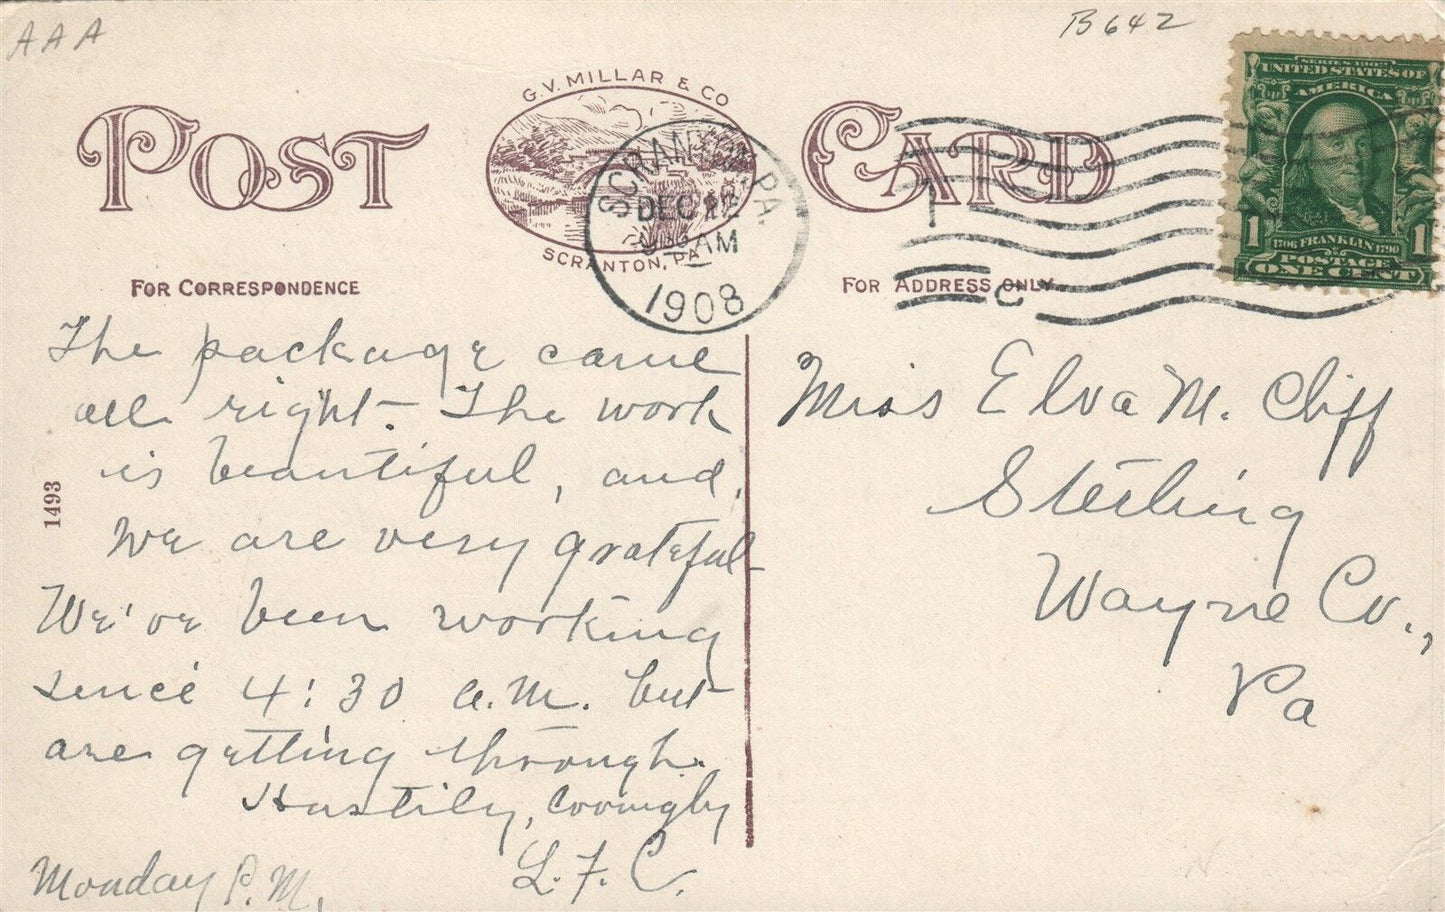 AAA
B642
G.V. MILLAR & CO
SCRANTON, PA
POST CARD
SCRANTON, PA.
DEC
AM
1908
SERIES 1902
UNITED STATES OF
AMERICA
1 1
1706 FRANKLIN 1790
POSTAGE
ONE CENT
C
FOR CORRESPONDENCE
FOR ADDRESS ONLY
1493
The package came
all right. The work
is beautiful, and
we are very grateful
We've been working
since 4:30 a.m. but
are getting through.
Hastily, Lovingly
L. F. C.
Monday P.M.
Miss Elva M. Cliff
Sterling
Wayne Co.,
Pa